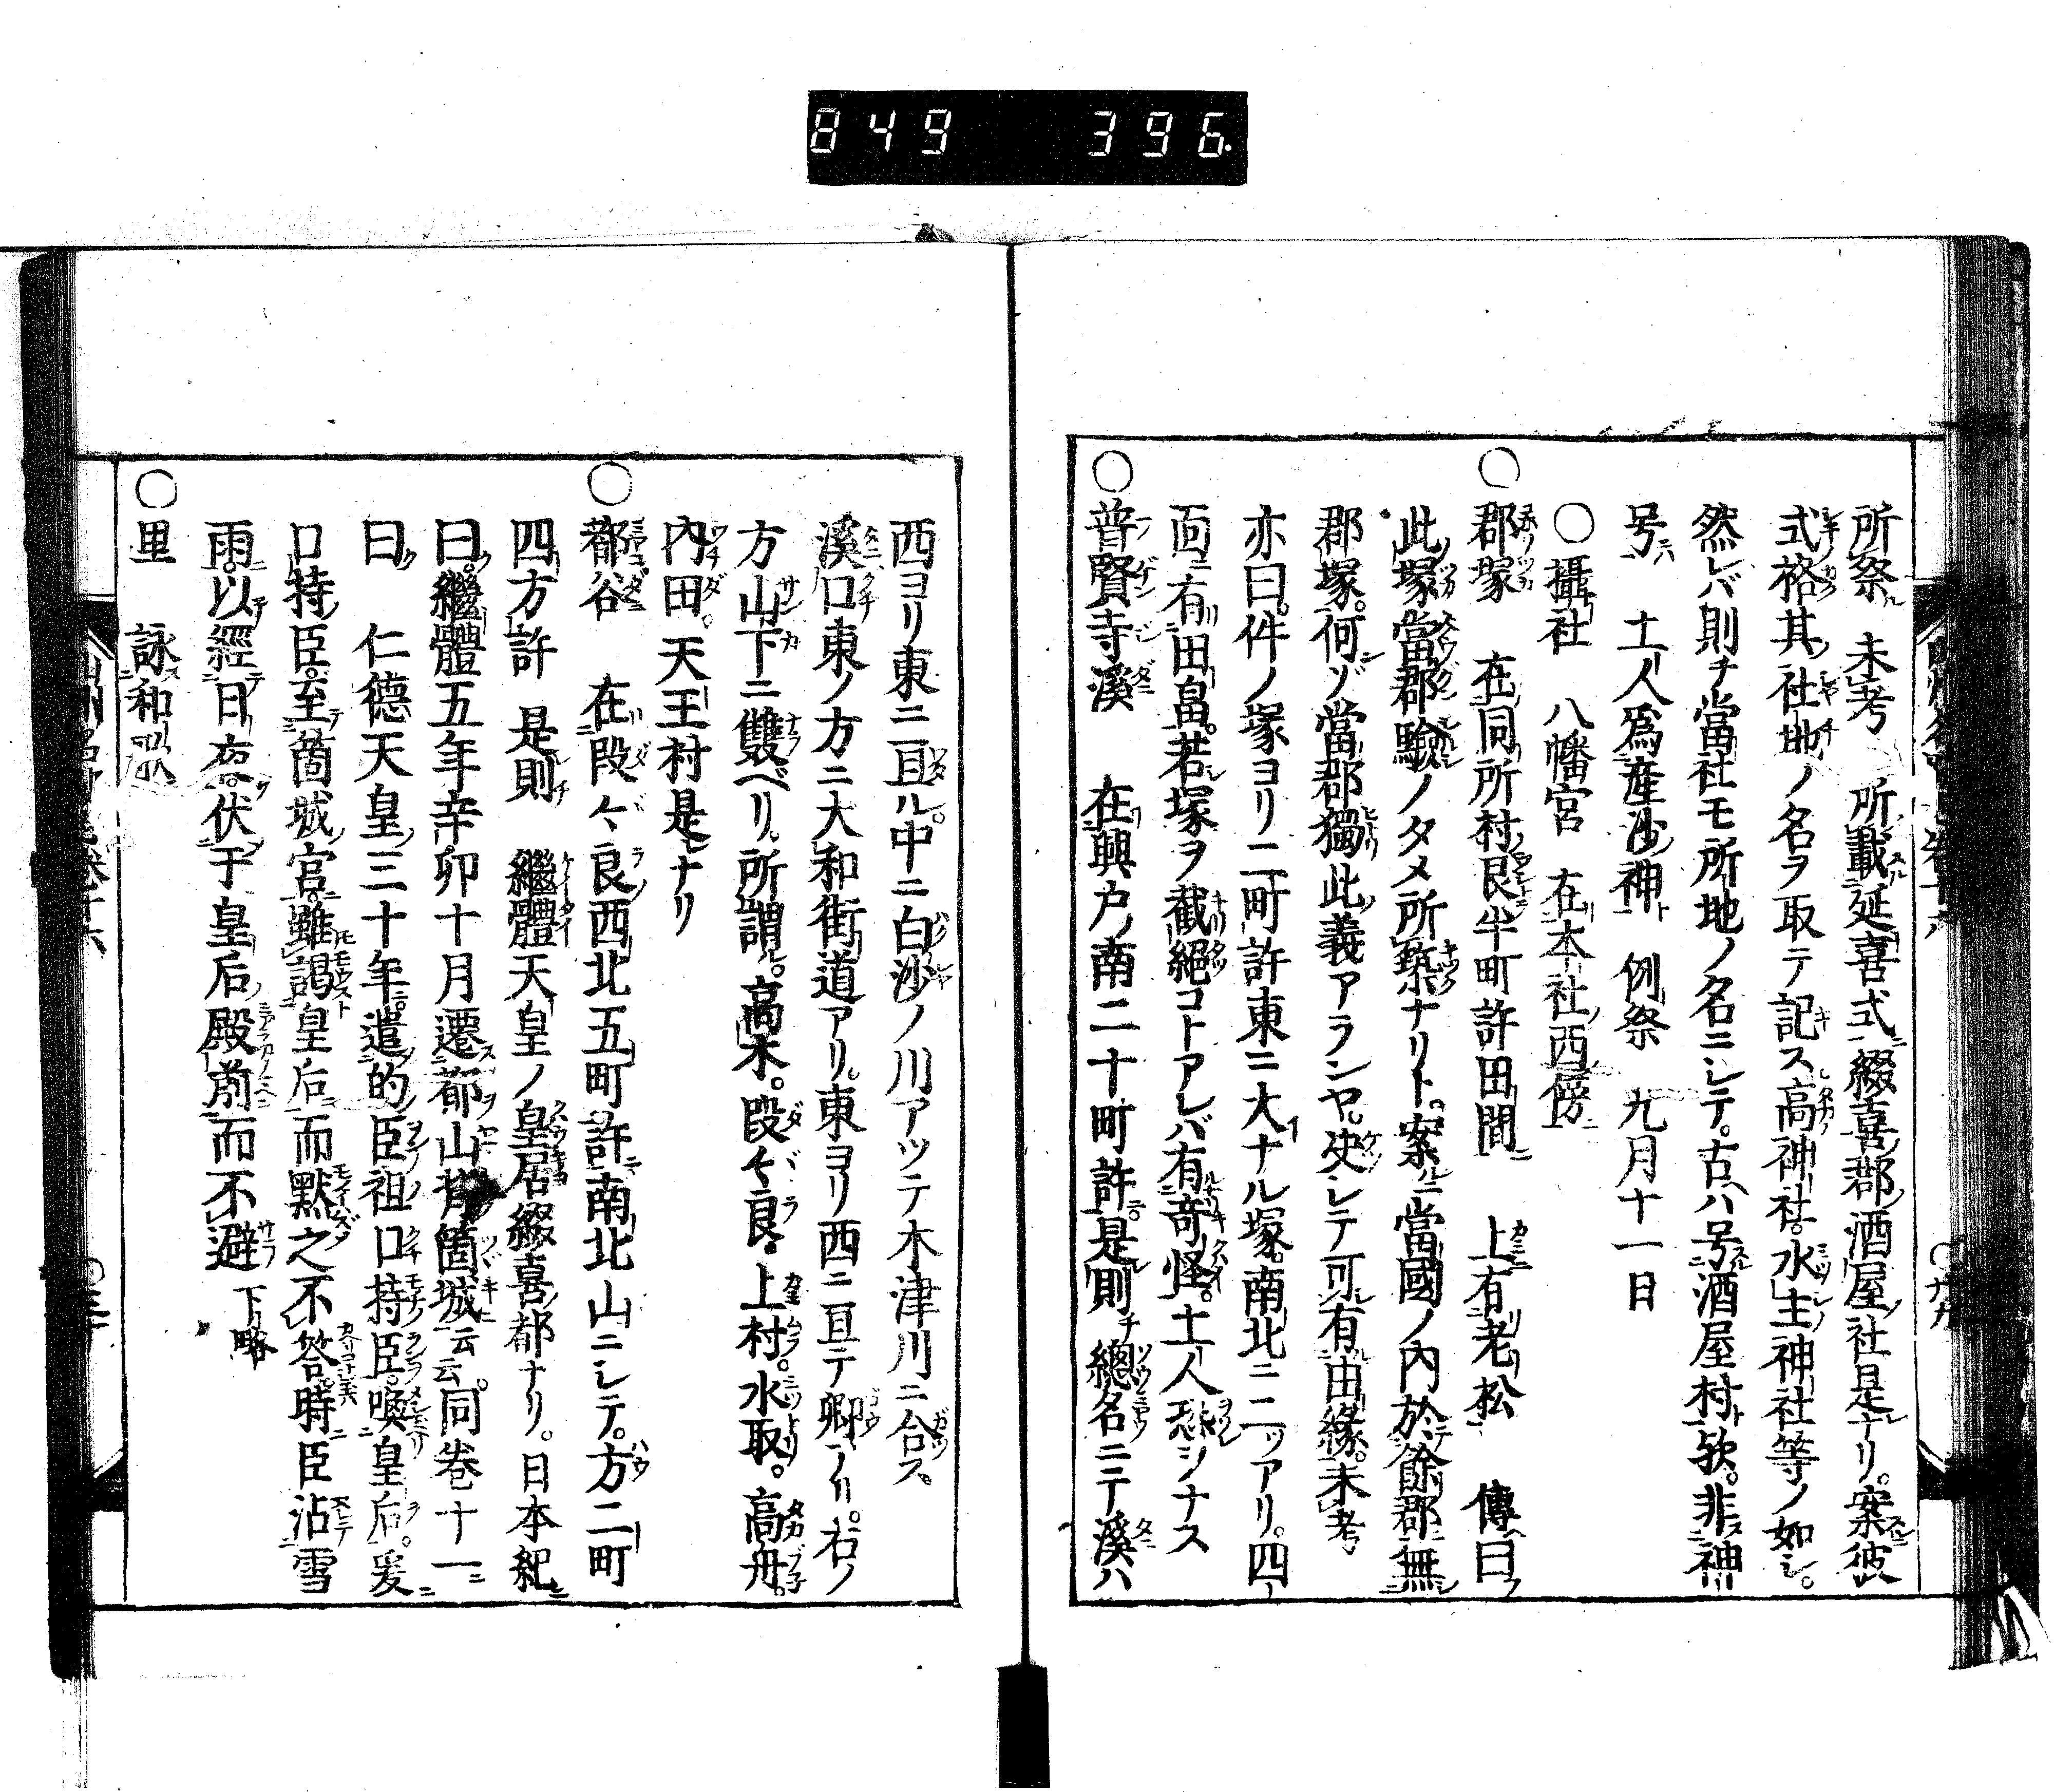 849 396
所祭 未考 所載延喜式綴喜郡酒屋社是ナリ。案彼
式格其社地ノ名ヲ取テ記ス高神社。水主神社等ノ如シ。
然レバ則チ當社モ所地ノ名ニシテ。古ハ号酒屋村欤。非神
号 土人爲産沙神 例祭 九月十一日
○攝社 八幡宮 在本社西傍
○郡塚 在同所村艮半町許田間 上有老松 傳曰
此塚當郡驗ノタメ所築ナリト。案ルニ當國ノ内於餘郡無
郡塚。何ゾ當郡獨此義アランヤ。决シテ可有由縁。未考
亦曰。件ノ塚ヨリ二町許東ニ大ナル塚。南北ニ二ツアリ。四
面有田畠。若塚ヲ截絕コトアレバ有奇怪。土人恐シナス
○普賢寺溪 在興戶南二十町許。是則チ總名ニテ溪ハ
西ヨリ東ニ亘ル。中ニ白沙ノ川アツテ木津川ニ合ス。
溪口東ノ方ニ大和街道アリ。東ヨリ西ニ亘テ鄉アリ。右ノ
方山下ニ雙ベリ。所謂。高木。段々良。上村。水取。高舟。
內田。天王村是ナリ
○都谷 在段々良西北五町許南北山ニシテ。方二町
四方許 是則 繼體天皇ノ皇居綴喜都ナリ。日本紀
曰。繼體五年辛卯十月遷都山背箇城云云。同卷十一
曰 仁德天皇三十年。遣的臣祖口持臣。喚皇后。爰
口持臣。至箇城宮。雖謁皇后而默之不答。時臣沾雪
雨。以經日夜。伏于皇后殿前而不避 下略
○里 詠和歌